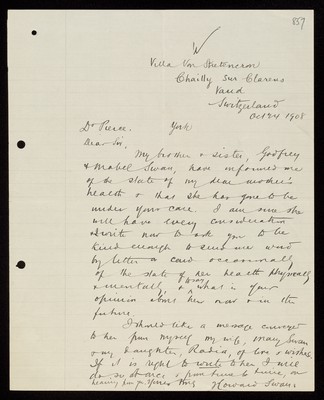 857
Villa Von Brettencron
Chailly sur Clarens
Vaud
Switzerland
Oct 24 1908
Dr Pierce. York
Dear Sir,
My brother & sister, Godfrey
& Mabel Swan, have informed me
of the state of my dear mother's
health & that she has gone to be
under your care. I am sure she
will have every consideration
& write now to ask you to be
kind enough to send me word
by letter or card occasionally
of the state of her health physically
& mentally, & what is your
opinion about her now & in the
future.
I should like a message conveyed
to her from myself, my wife, Mary Swan
& my daughter, Nadia, of love & wishes.
If it is right to write to her I will
do so at once & from time to time, on
hearing from you. Yours truly Howard Swan.